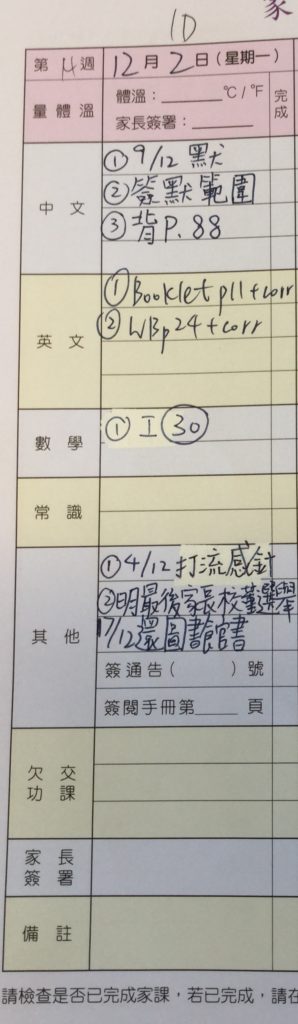 家
1D
第 14 週 12 月 2 日 (星期一)
量體溫 體溫：______ °C / °F 完成
家長簽署：______
中文
① 9/12 默
② 簽默範圍
③ 背 P. 88
英文
① Booklet p11 + corr
② WB p24 + corr
數學
① I ㉚
常識
其他
① 4/12 打流感針
② 明最後家長校董選舉
17/12 還圖書館書
簽通告 (　　　) 號
簽閱手冊第____頁
欠交功課
家長簽署
備註
請檢查是否已完成家課，若已完成，請在